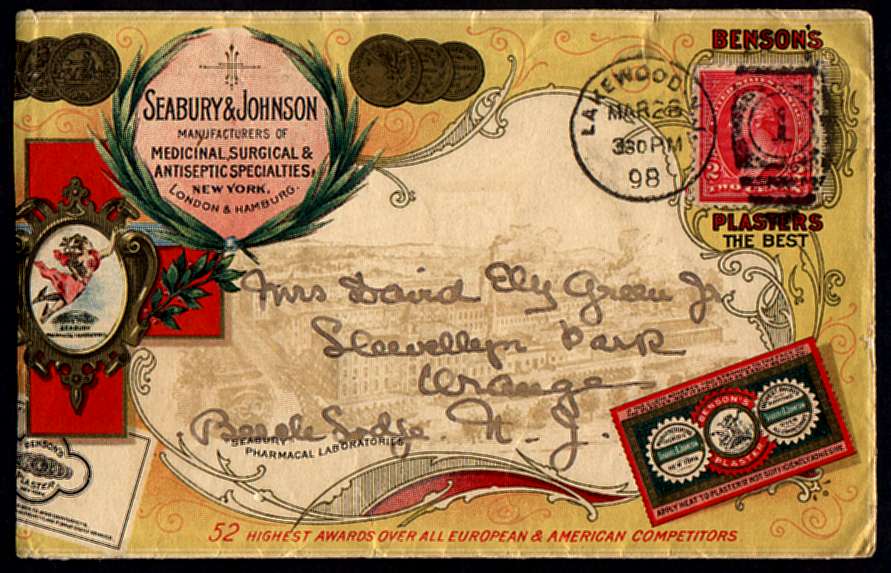 SEABURY & JOHNSON
MANUFACTURERS OF
MEDICINAL, SURGICAL &
ANTISEPTIC SPECIALTIES,
NEW YORK,
LONDON & HAMBURG.
LAKEWOOD
MAR 28
330 PM
98
BENSON'S
2
1
PLASTERS
THE BEST
Mrs David Ely Green Jr
Llewellyn Park
Orange
N. J.
SEABURY
PHARMACAL LABORATORIES
SEABURY
BENSON'S
PLASTER
BENSON'S
PLASTER
SEABURY & JOHNSON
NEW YORK
SEABURY & JOHNSON
APPLY HEAT TO PLASTER IF NOT SUFFICIENTLY ADHESIVE.
52 HIGHEST AWARDS OVER ALL EUROPEAN & AMERICAN COMPETITORS